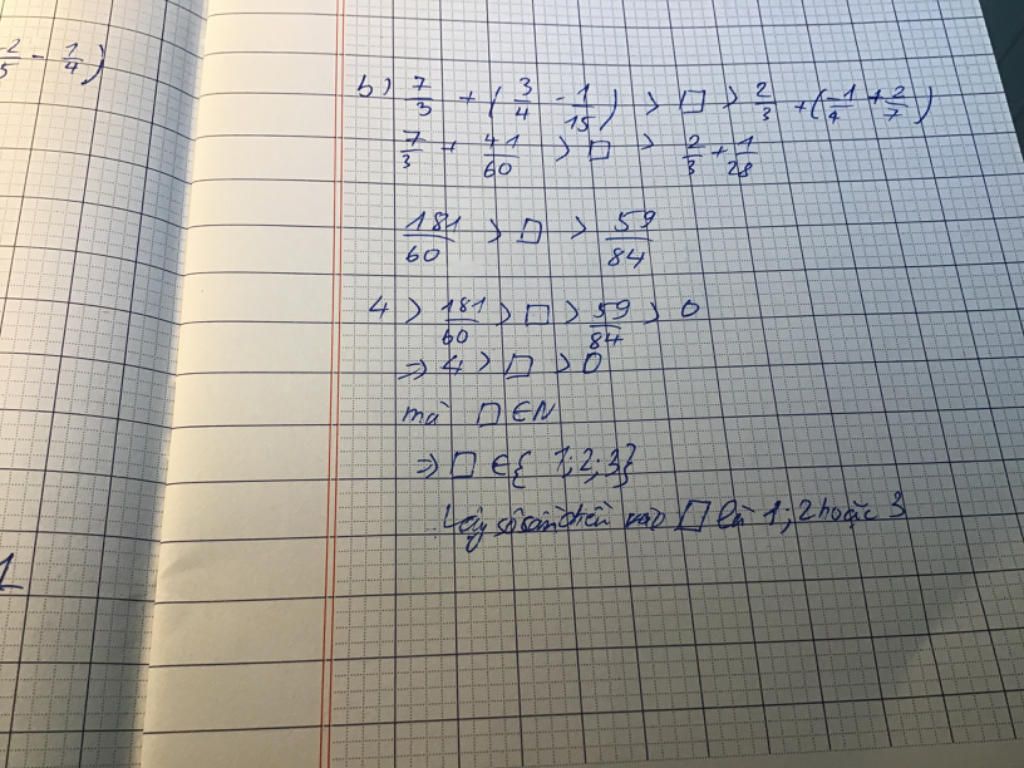 2/5 - 1/4)
b) 7/3 + (3/4 - 1/15) > □ > 2/3 + (-1/4 + 2/7)
7/3 + 41/60 > □ > 2/3 + 1/28
181/60 > □ > 59/84
4 > 181/60 > □ > 59/84 > 0
⇒ 4 > □ > 0
mà □ ∈ N
⇒ □ ∈ { 1; 2; 3}
Vậy số cần điền vào □ là 1; 2 hoặc 3
1